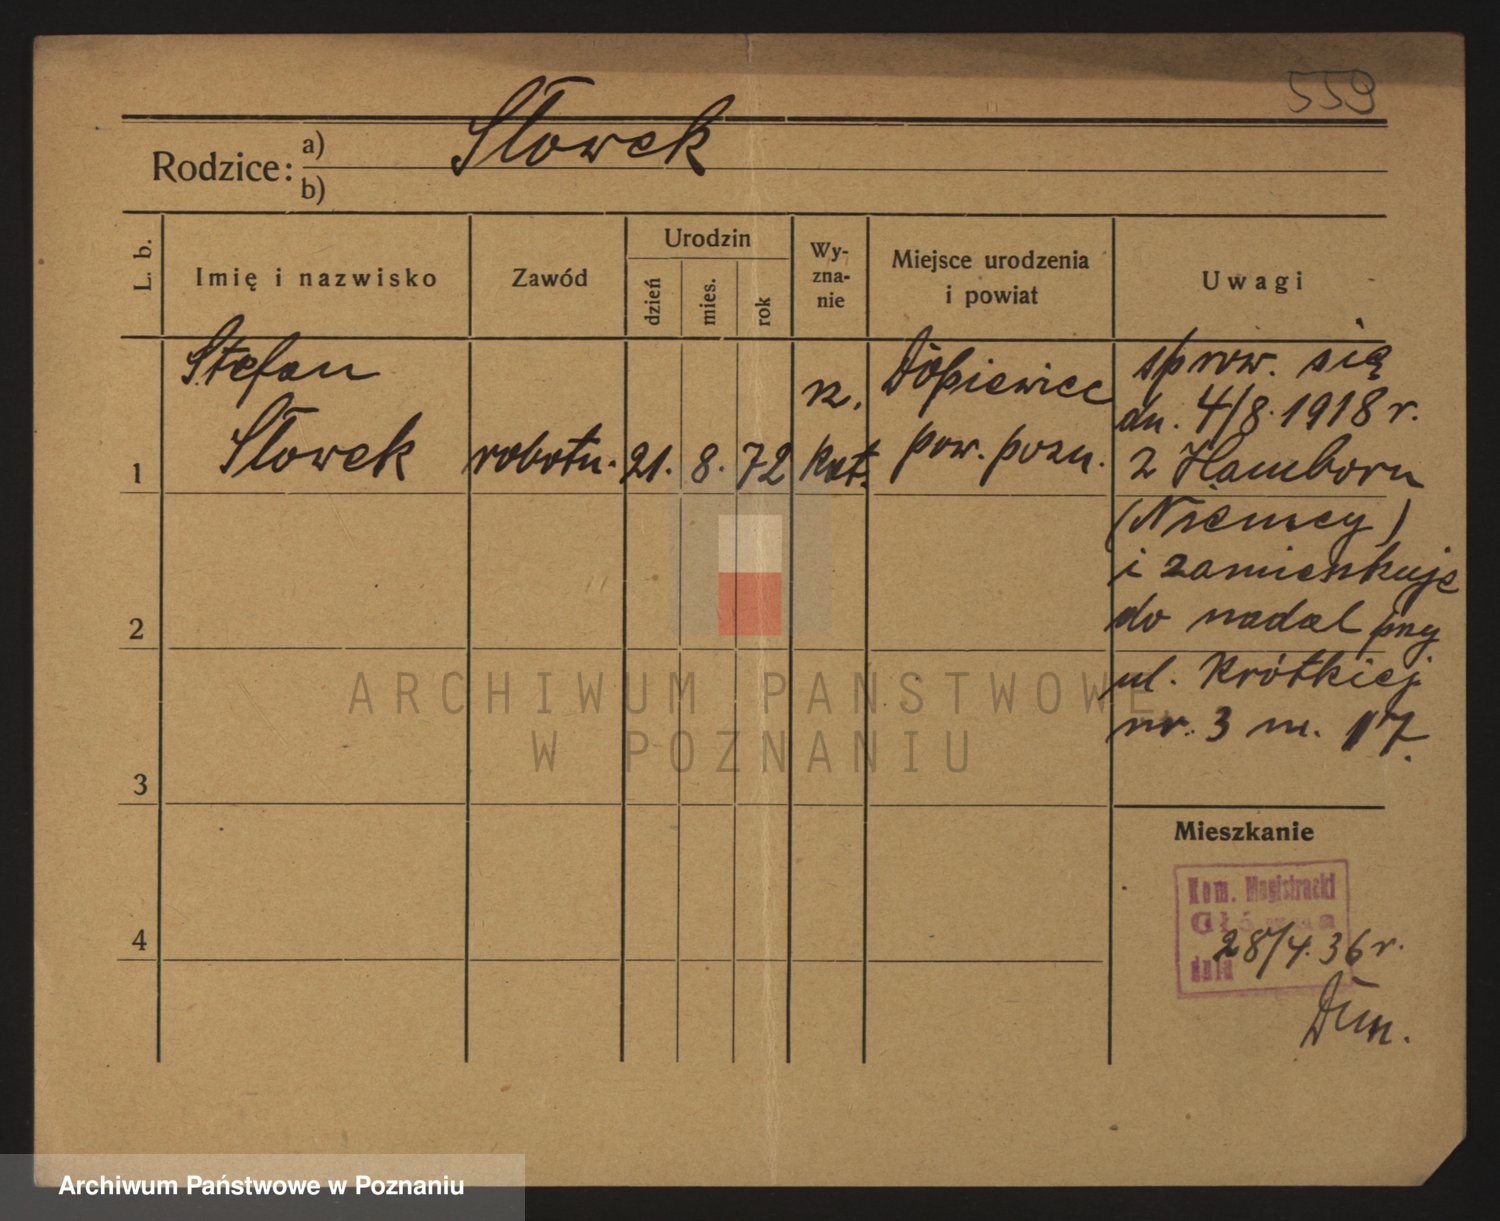 559
Słowek
Rodzice: a)
b)
L. b.
Imię i nazwisko
Zawód
Urodzin
dzień
mies.
rok
Wy-
zna-
nie
Miejsce urodzenia
i powiat
Uwagi
Stefan
Słowek
robotn.
21.
8.
72
rz.
kat.
Dopiewiec
pow. pozn.
sprow. się
dn. 4/8. 1918 r.
z Hamborn
(Niemcy)
i zamieszkuje
do nadal przy
ul. Krótkiej
nr. 3 m. 17.
1
2
3
4
Mieszkanie
Kom. Magistracki
Główna
dnia
28/4. 36 r.
ARCHIWUM PAŃSTWOWE
W POZNANIU
Archiwum Państwowe w Poznaniu